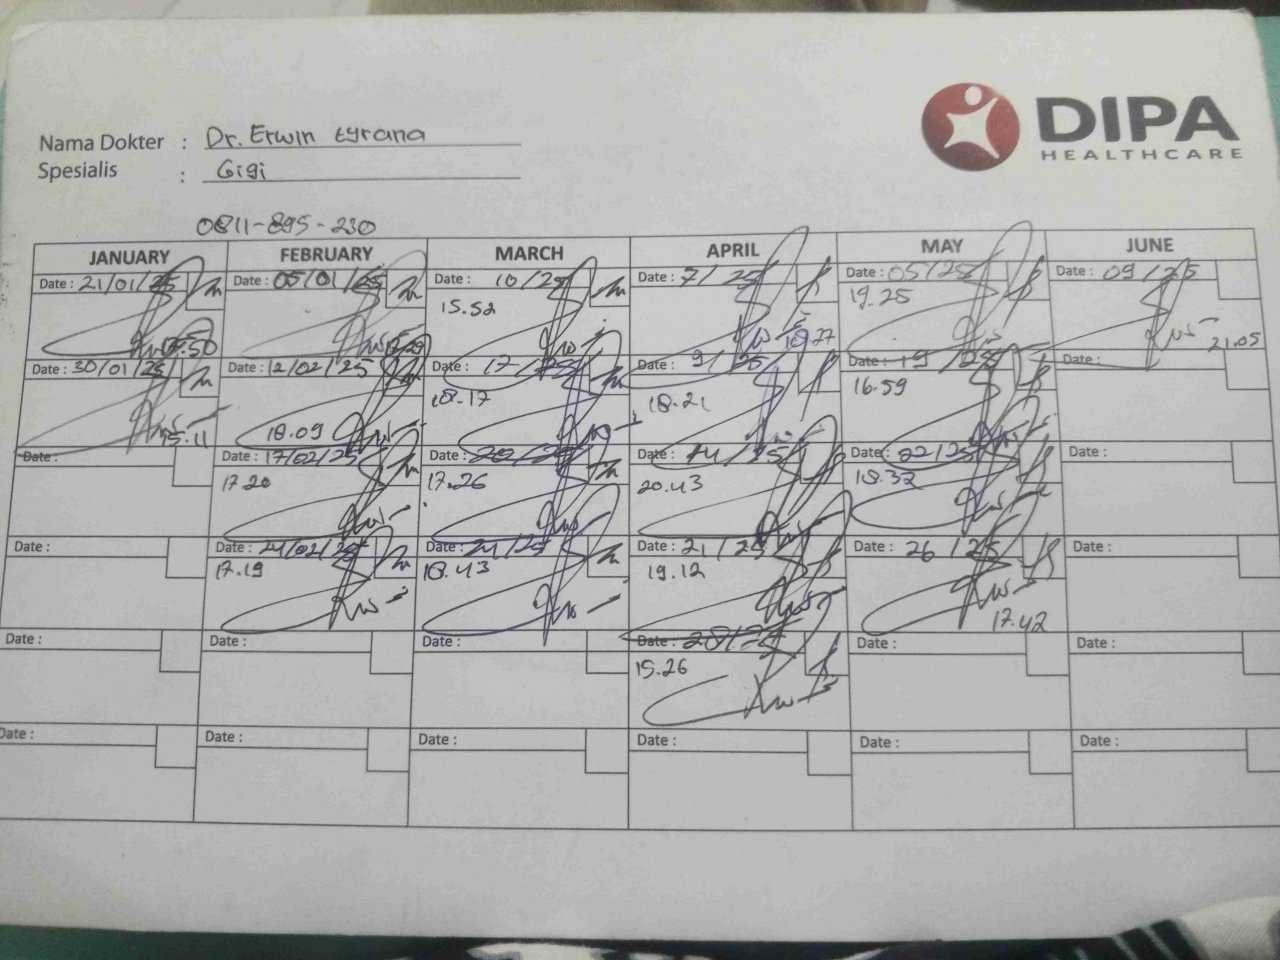 DIPA
HEALTHCARE
Nama Dokter : Dr. Erwin tyrana
Spesialis : Gigi
0811-895-230
JANUARY FEBRUARY MARCH APRIL MAY JUNE
Date : 21/01/25 Date : 05/01/25 Date : 10/25 Date : 7/25 Date : 05/25 Date : 09/25
15.52 19.25
21.05
Date : 30/01/25 Date : 12/02/25 Date : 17/25 Date : 9/25 Date : 19/25 Date :
18.09 18.17 18.21 16.59
15.11
Date : Date : 17/02/25 Date : 20/25 Date : 14/25 Date : 22/25 Date :
17.20 17.26 20.43 18.32
Date : Date : 24/02/25 Date : 24/25 Date : 21/25 Date : 26/25 Date :
17.19 18.43 19.12
17.42
Date : Date : Date : Date : 28/25 Date : Date :
15.26
Date : Date : Date : Date : Date : Date :